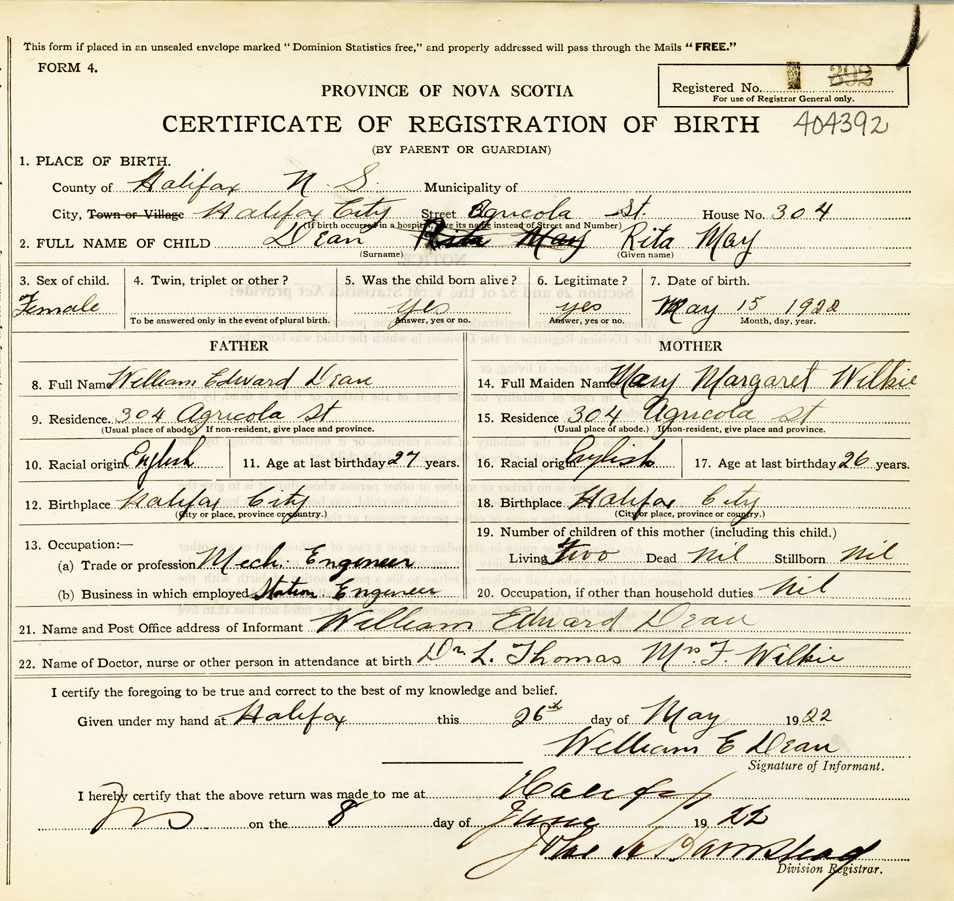 This form if placed in an unsealed envelope marked "Dominion Statistics free," and properly addressed will pass through the Mails "FREE."
FORM 4.
Registered No. 392
For use of Registrar General only.
PROVINCE OF NOVA SCOTIA
CERTIFICATE OF REGISTRATION OF BIRTH 404392
(BY PARENT OR GUARDIAN)
1. PLACE OF BIRTH.
County of Halifax N. S. Municipality of
City, Town or Village Halifax City Street Agricola St. House No. 304
(If birth occurred in a hospital, give its name instead of Street and Number)
2. FULL NAME OF CHILD Dean Rita May Rita May
(Surname) (Given name)
3. Sex of child. 4. Twin, triplet or other? 5. Was the child born alive? 6. Legitimate? 7. Date of birth.
Female yes yes May 15 1922
To be answered only in the event of plural birth. Answer, yes or no. Answer, yes or no. Month, day, year.
FATHER MOTHER
8. Full Name William Edward Dean 14. Full Maiden Name Mary Margaret Wilkie
9. Residence. 304 Agricola St 15. Residence 304 Agricola St
(Usual place of abode.) If non-resident, give place and province. (Usual place of abode.) If non-resident, give place and province.
10. Racial origin English 11. Age at last birthday 27 years. 16. Racial origin English 17. Age at last birthday 26 years.
12. Birthplace Halifax City 18. Birthplace Halifax City
(City or place, province or country.) (City or place, province or country.)
13. Occupation:— 19. Number of children of this mother (including this child.)
(a) Trade or profession Mech. Engineer Living two Dead nil Stillborn nil
(b) Business in which employed Engineer 20. Occupation, if other than household duties nil
21. Name and Post Office address of Informant William Edward Dean
22. Name of Doctor, nurse or other person in attendance at birth Dr L. Thomas Mrs F. Wilkie
I certify the foregoing to be true and correct to the best of my knowledge and belief.
Given under my hand at Halifax this 26th day of May 1922
William E Dean
Signature of Informant.
I hereby certify that the above return was made to me at Halifax
on the 8 day of June 1922
Division Registrar.